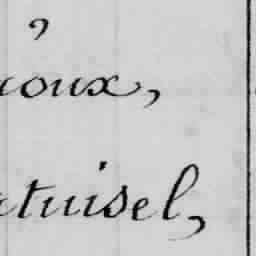 ,
coux,
rtuisel,